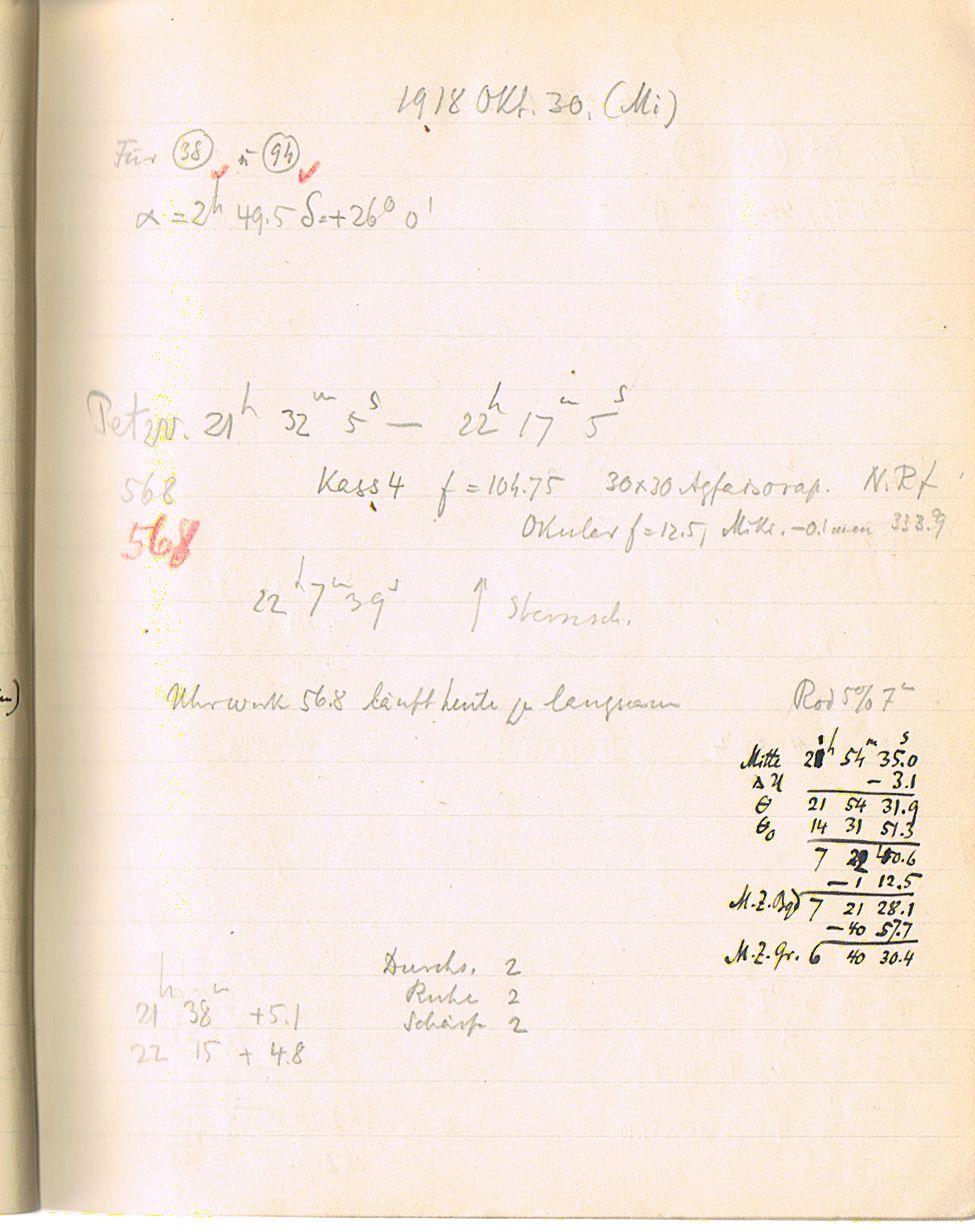 1918 Okt. 30. (Mi)
Für 38 u 94
α = 2h 49.5 δ = +26° 0'
Petzv. 21h 32m 5s — 22h 17m 5s
568 Kass 4 f = 104.75 30x30 Agfaisorap. N.R.f
568 Okular f = 12.5, Mikr. -0.1 mm 333.9
22h 7m 39s ↑ Sternsch.
Uhrwerk 568 läuft heute zu langsam Rod 5% 7m
Mitte 21h 54m 35.0s
ΔU - 3.1
θ 21 54 31.9
θ0 14 31 51.3
7 22 40.6
- 1 12.5
M.Z.Bg 7 21 28.1
- 40 57.7
M.Z.Gr. 6 40 30.4
Durchs. 2
Ruhe 2
Schärfe 2
h m
21 38 +5.1
22 15 +4.8